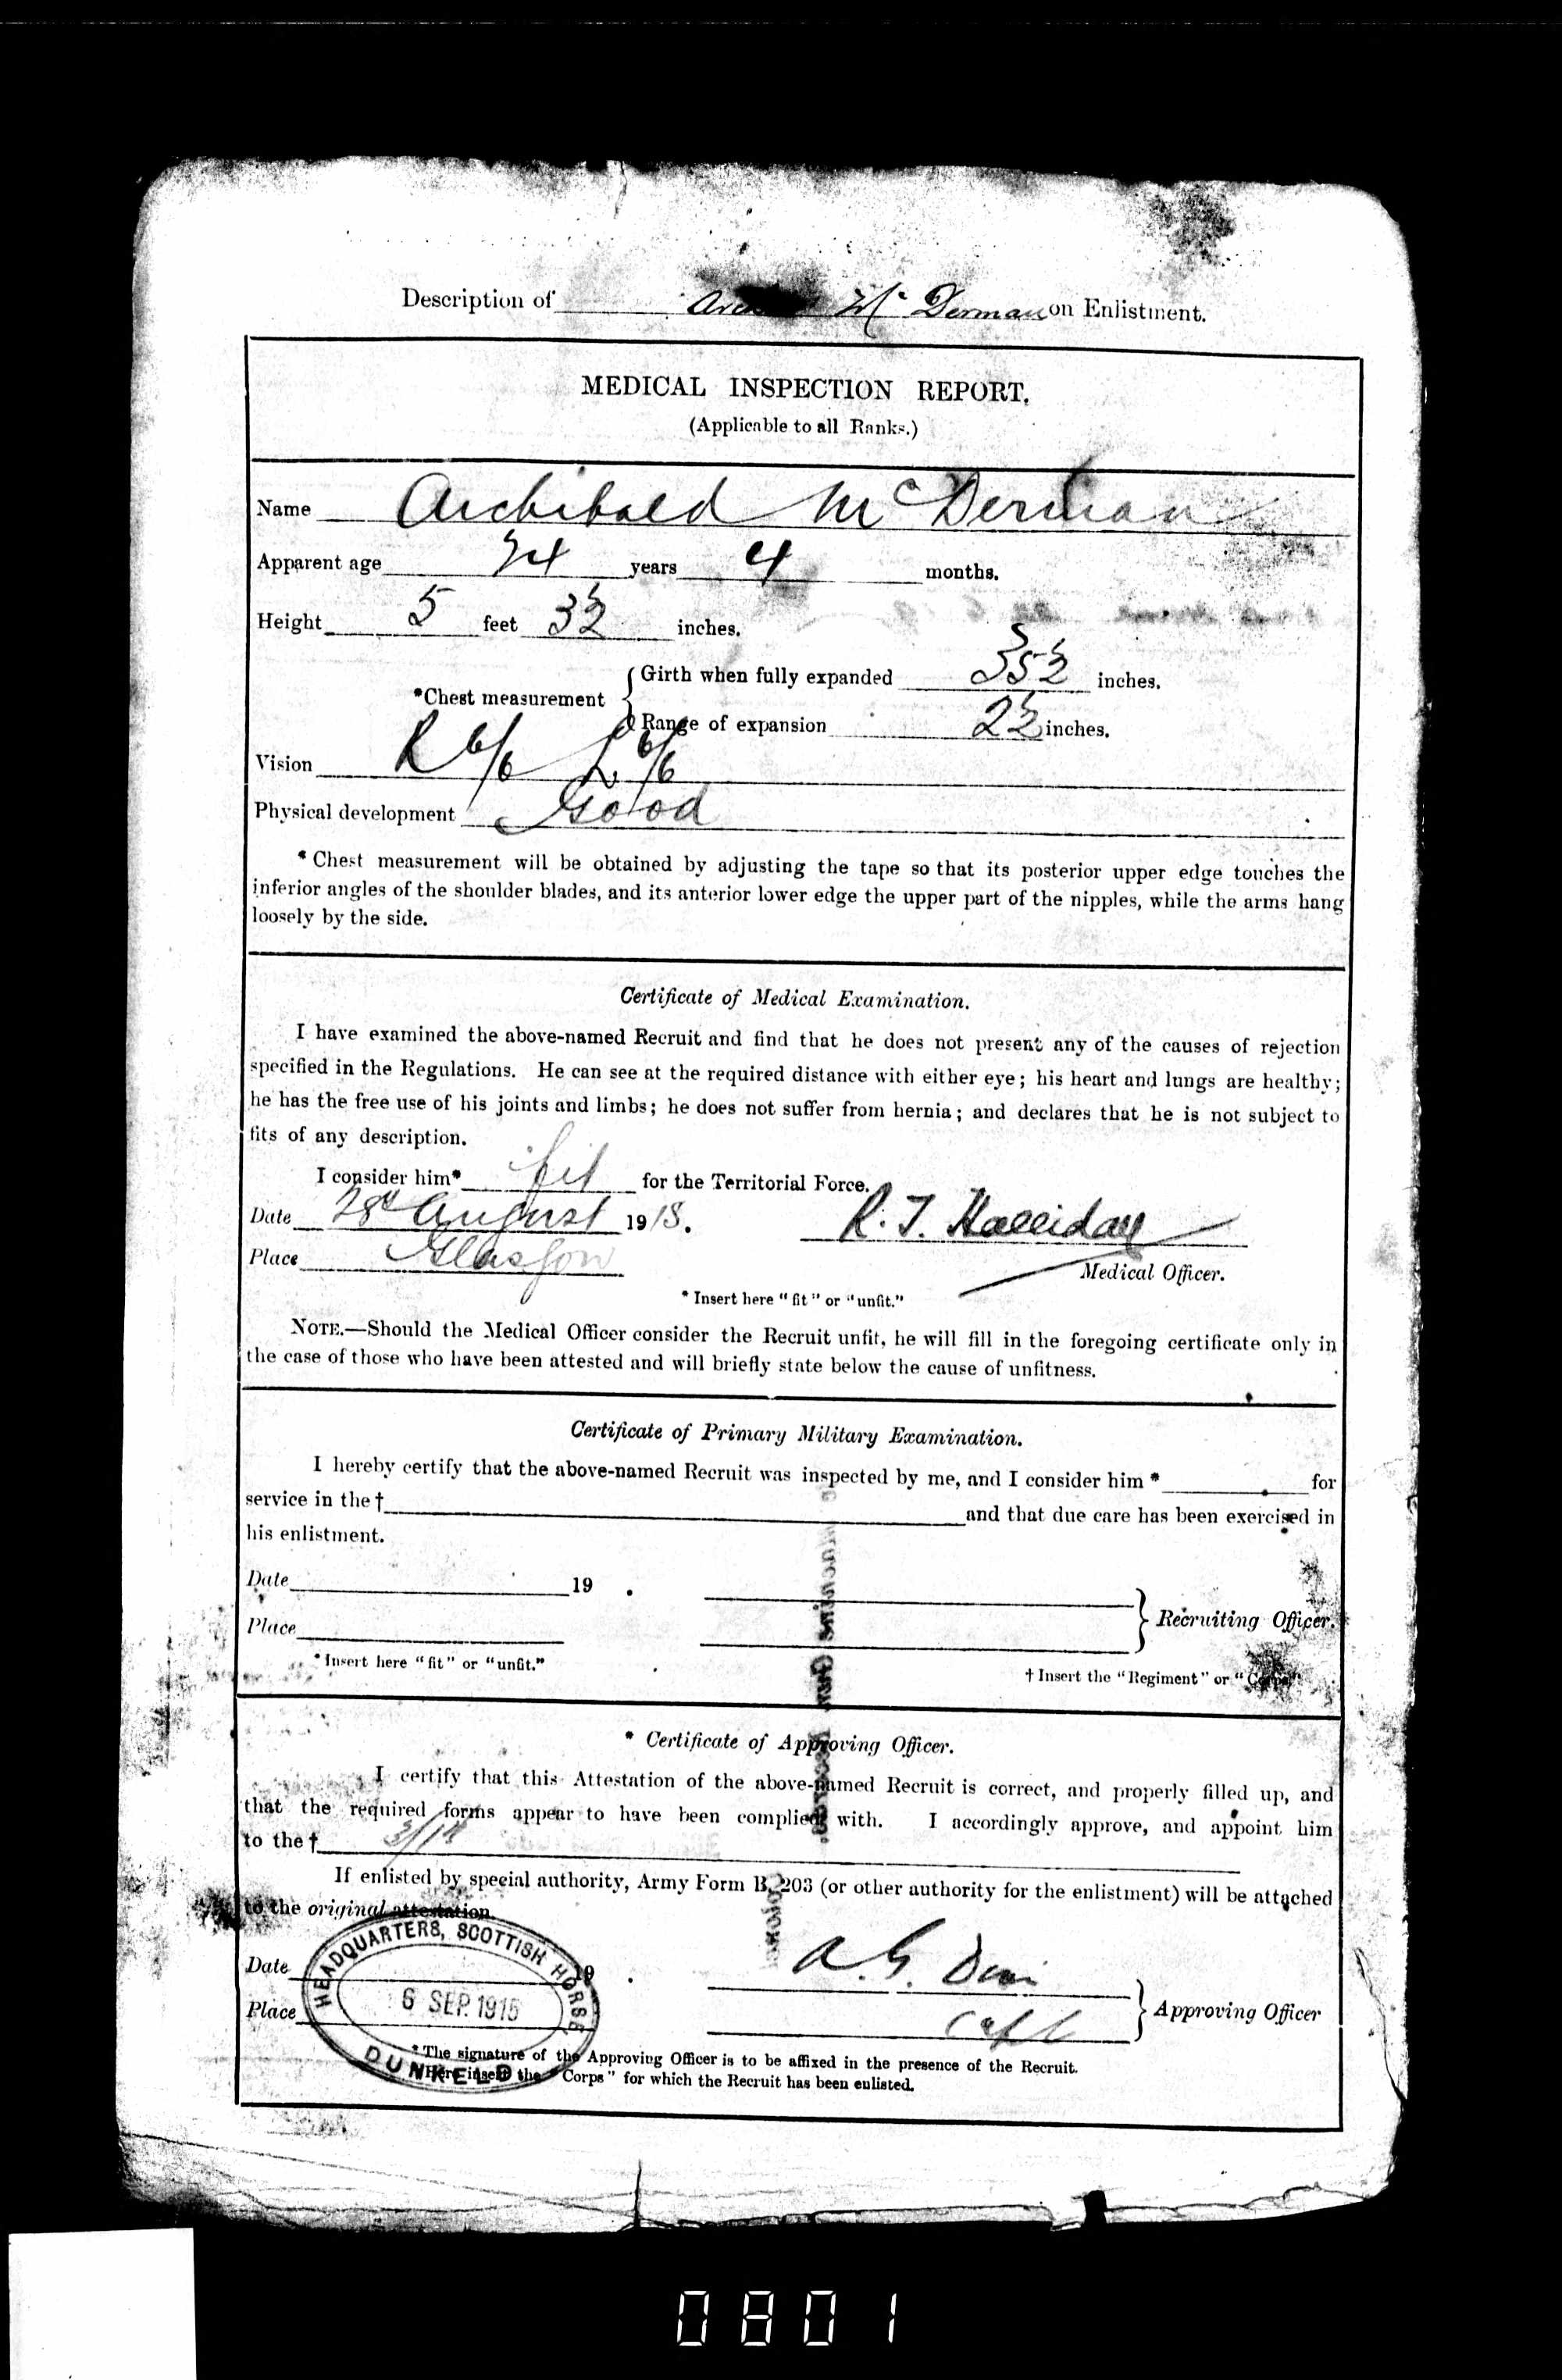 Description of Mc Derman on Enlistment.
MEDICAL INSPECTION REPORT.
(Applicable to all Ranks.)
Name Archibald McDerman
Apparent age 24 years 4 months.
Height 5 feet 3½ inches.
*Chest measurement { Girth when fully expanded 35½ inches.
Range of expansion 2½ inches.
Vision R 6/6 L 6/6
Physical development Good
* Chest measurement will be obtained by adjusting the tape so that its posterior upper edge touches the
inferior angles of the shoulder blades, and its anterior lower edge the upper part of the nipples, while the arms hang
loosely by the side.
Certificate of Medical Examination.
I have examined the above-named Recruit and find that he does not present any of the causes of rejection
specified in the Regulations. He can see at the required distance with either eye; his heart and lungs are healthy;
he has the free use of his joints and limbs; he does not suffer from hernia; and declares that he is not subject to
fits of any description.
I consider him* fit for the Territorial Force.
Date 28th August 1915. R. T. Halliday
Place Glasgow Medical Officer.
* Insert here "fit" or "unfit."
NOTE.—Should the Medical Officer consider the Recruit unfit, he will fill in the foregoing certificate only in
the case of those who have been attested and will briefly state below the cause of unfitness.
Certificate of Primary Military Examination.
I hereby certify that the above-named Recruit was inspected by me, and I consider him * for
service in the † and that due care has been exercised in
his enlistment.
Date 19 .
Place } Recruiting Officer.
* Insert here "fit" or "unfit." † Insert the "Regiment" or "Corps"
* Certificate of Approving Officer.
I certify that this Attestation of the above-named Recruit is correct, and properly filled up, and
that the required forms appear to have been complied with. I accordingly approve, and appoint him
to the †
If enlisted by special authority, Army Form B. 203 (or other authority for the enlistment) will be attached
to the original attestation.
HEADQUARTERS, SCOTTISH HORSE
6 SEP. 1915
DUNKELD
Date 19 . A. G.
Place Capt } Approving Officer
* The signature of the Approving Officer is to be affixed in the presence of the Recruit.
Here insert the "Corps" for which the Recruit has been enlisted.
0801